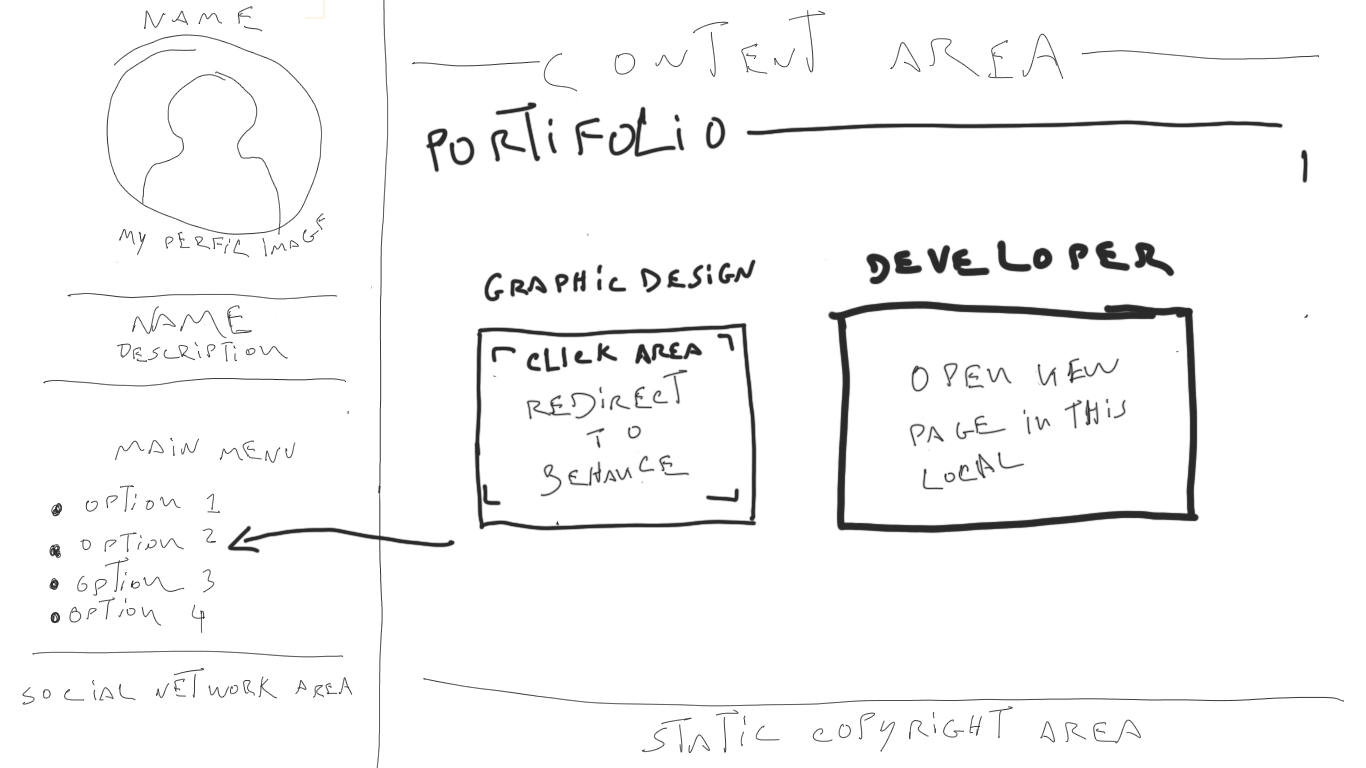 NAME
MY PERFIL IMAGE
NAME
DESCRIPTION
MAIN MENU
OPTION 1
OPTION 2
OPTION 3
OPTION 4
SOCIAL NETWORK AREA
CONTENT AREA
PORTiFOLiO
GRAPHIC DESIGN
CLICK AREA
REDIRECT
TO
BEHANCE
DEVELOPER
OPEN NEW
PAGE in THIS
LOCAL
STATIC COPYRIGHT AREA